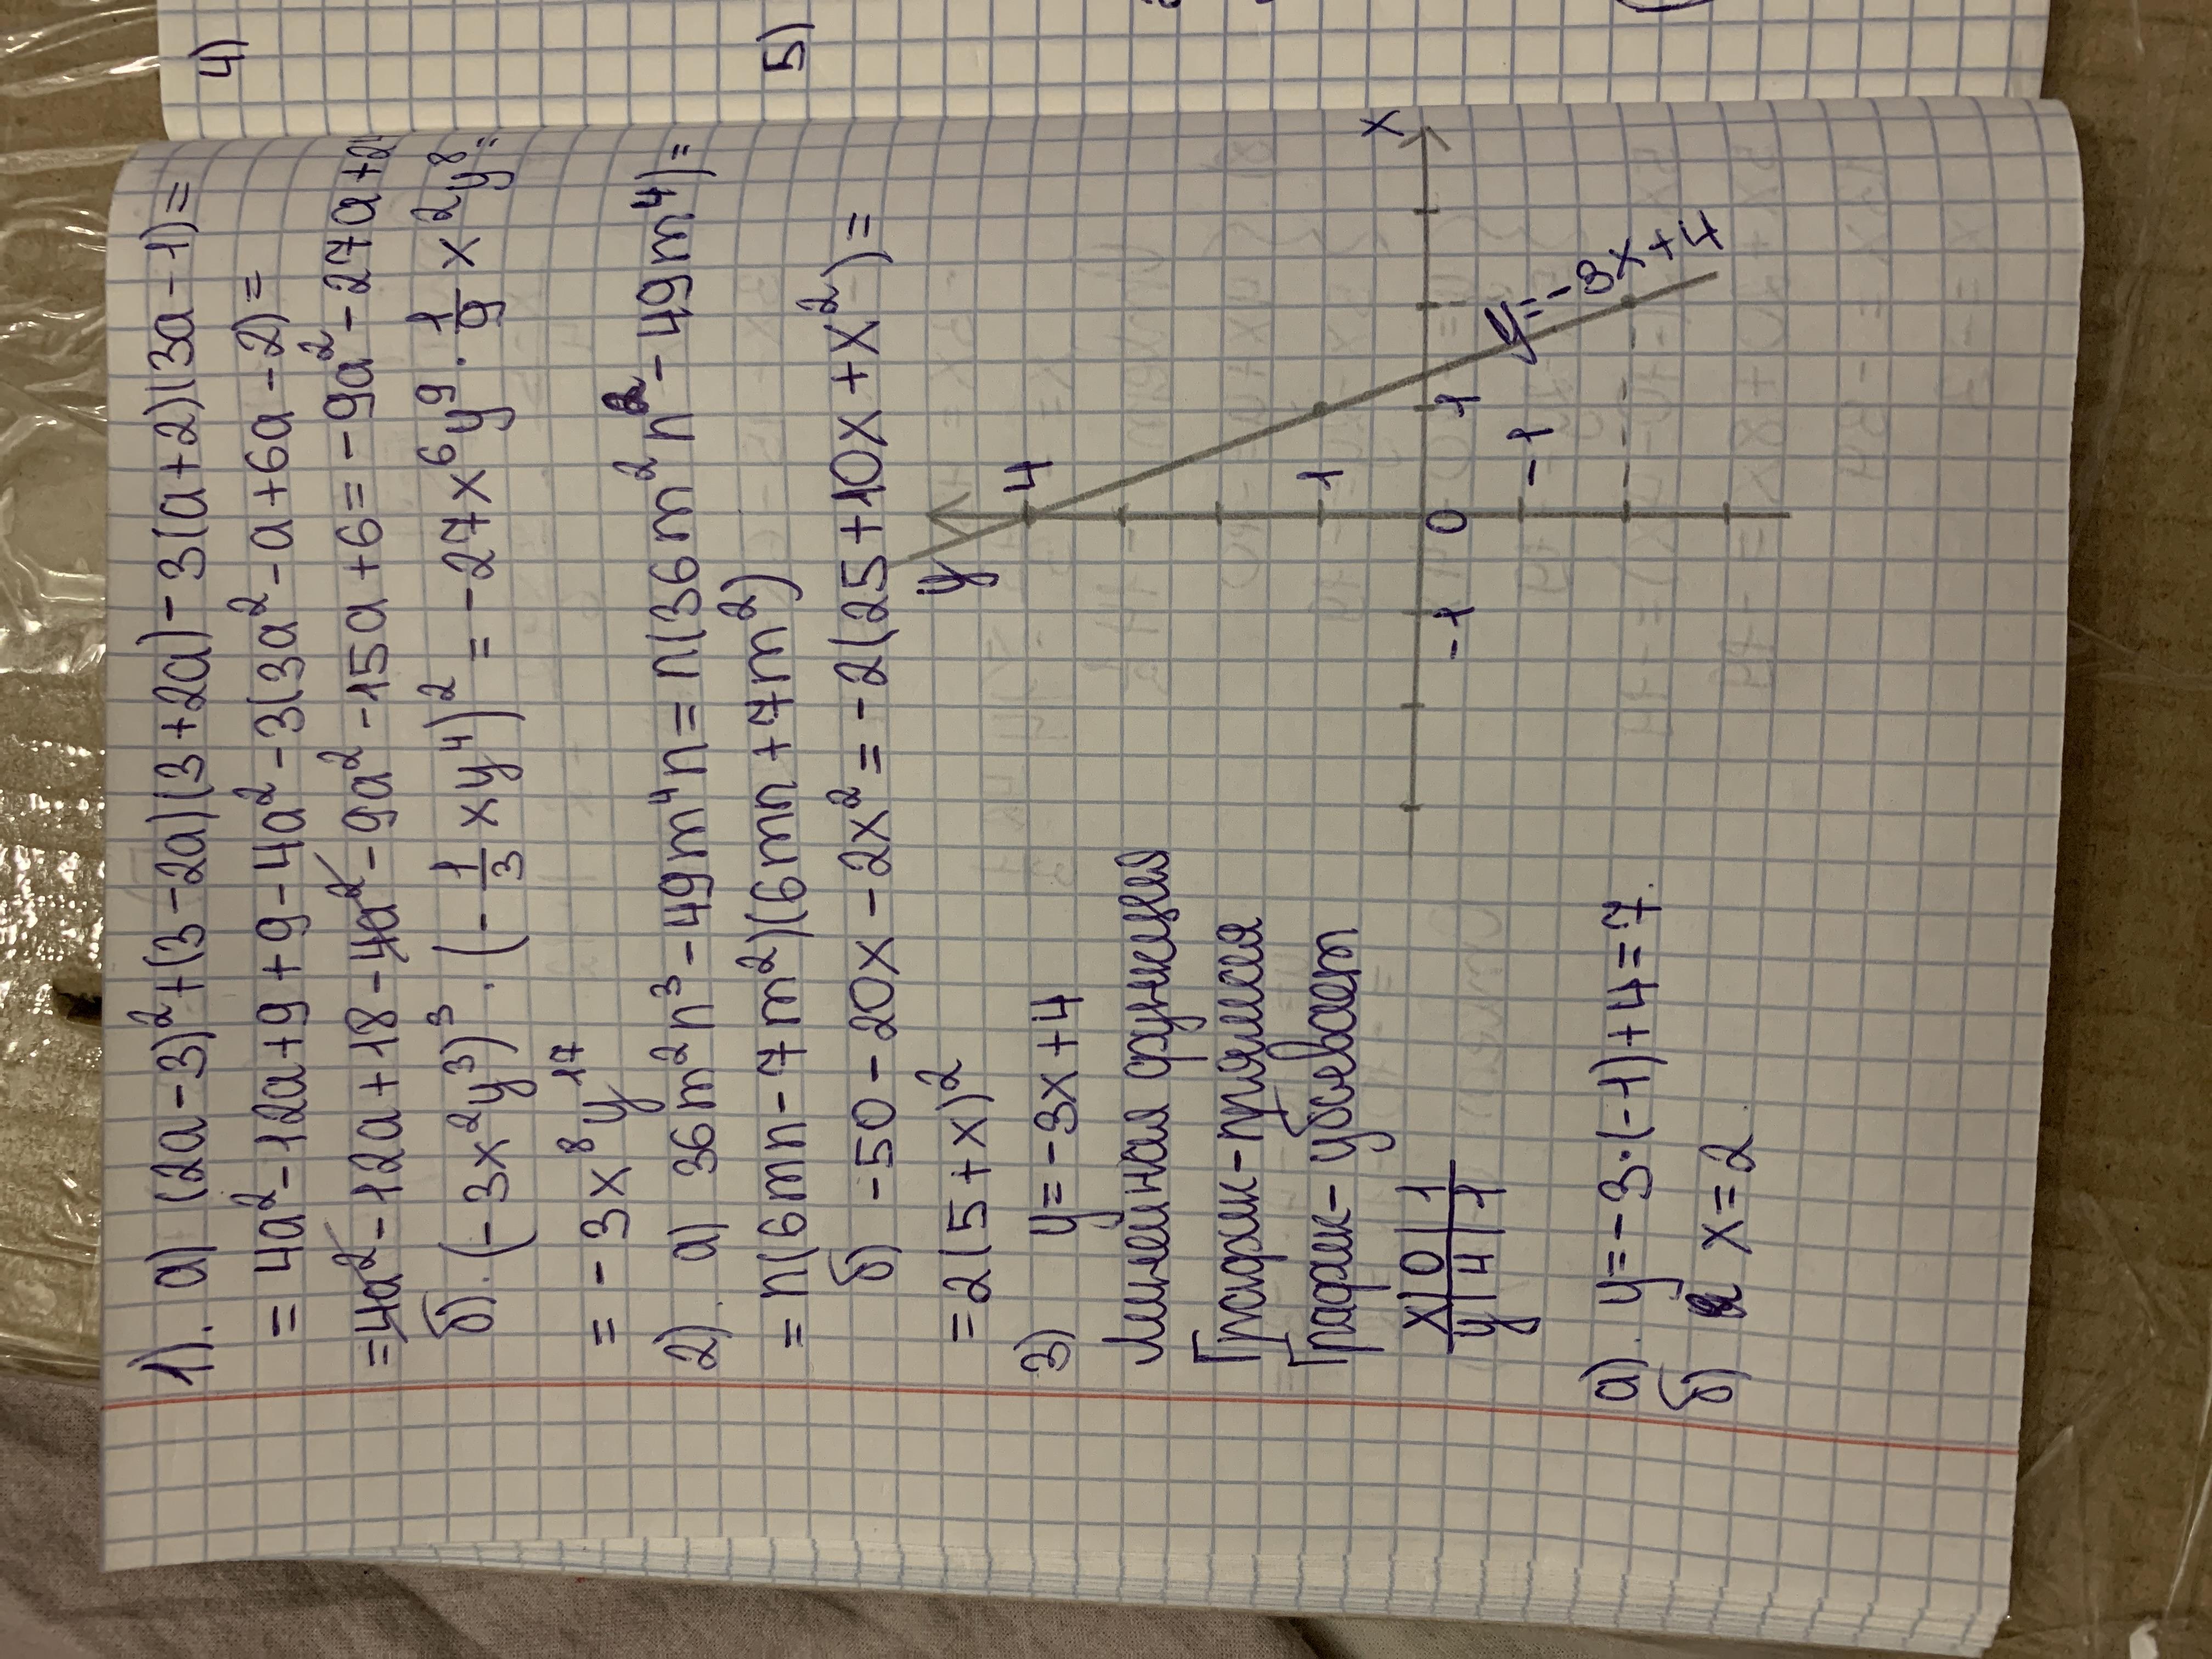 1). а) (2a-3)²+(3-2a)(3+2a)-3(a+2)(3a-1)=
=4a²-12a+9+9-4a²-3(3a²-a+6a-2)=
=4a²-12a+18-4a²-9a²-15a+6=-9a²-27a+2
б). (-3x²y³)³·(-1/3xy⁴)²=-27x⁶y⁹·1/9x²y⁸=
=-3x⁸y¹⁷
2). а) 36m²n³-49m⁴n=n(36m²n²-49m⁴)=
=n(6mn-7m²)(6mn+7m²)
б) -50-20x-2x²=-2(25+10x+x²)=
=2(5+x)²
3) y=-3x+4
Линейная функция
График-прямая
График-убывает
x|0|1
y|4|1
а). y=-3·(-1)+4=7.
б) x=2
y
x
4
1
0
1
-1
-1
y=-3x+4
4)
5)